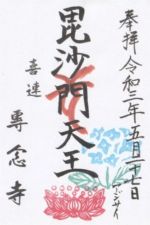 奉拝 令和三年五月二十七日
アジサイ
毘沙門天王
喜連
専念寺